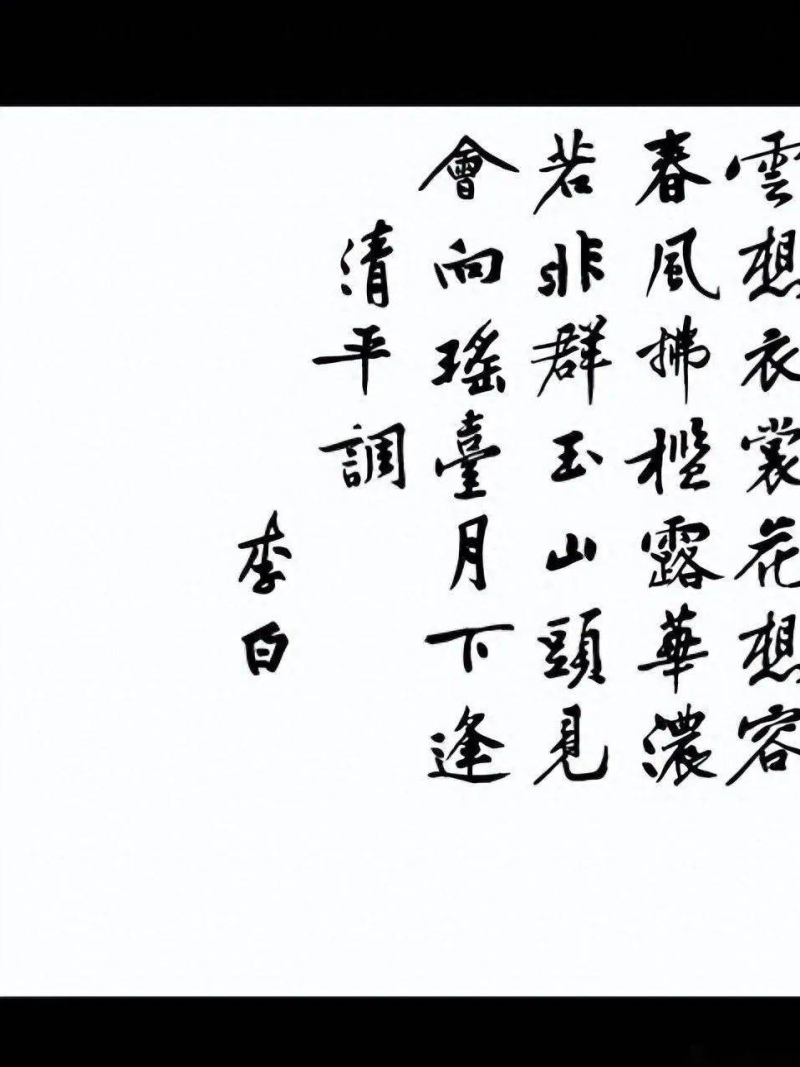 雲想衣裳花想容
春風拂檻露華濃
若非群玉山頭見
會向瑤臺月下逢
清平調
李白